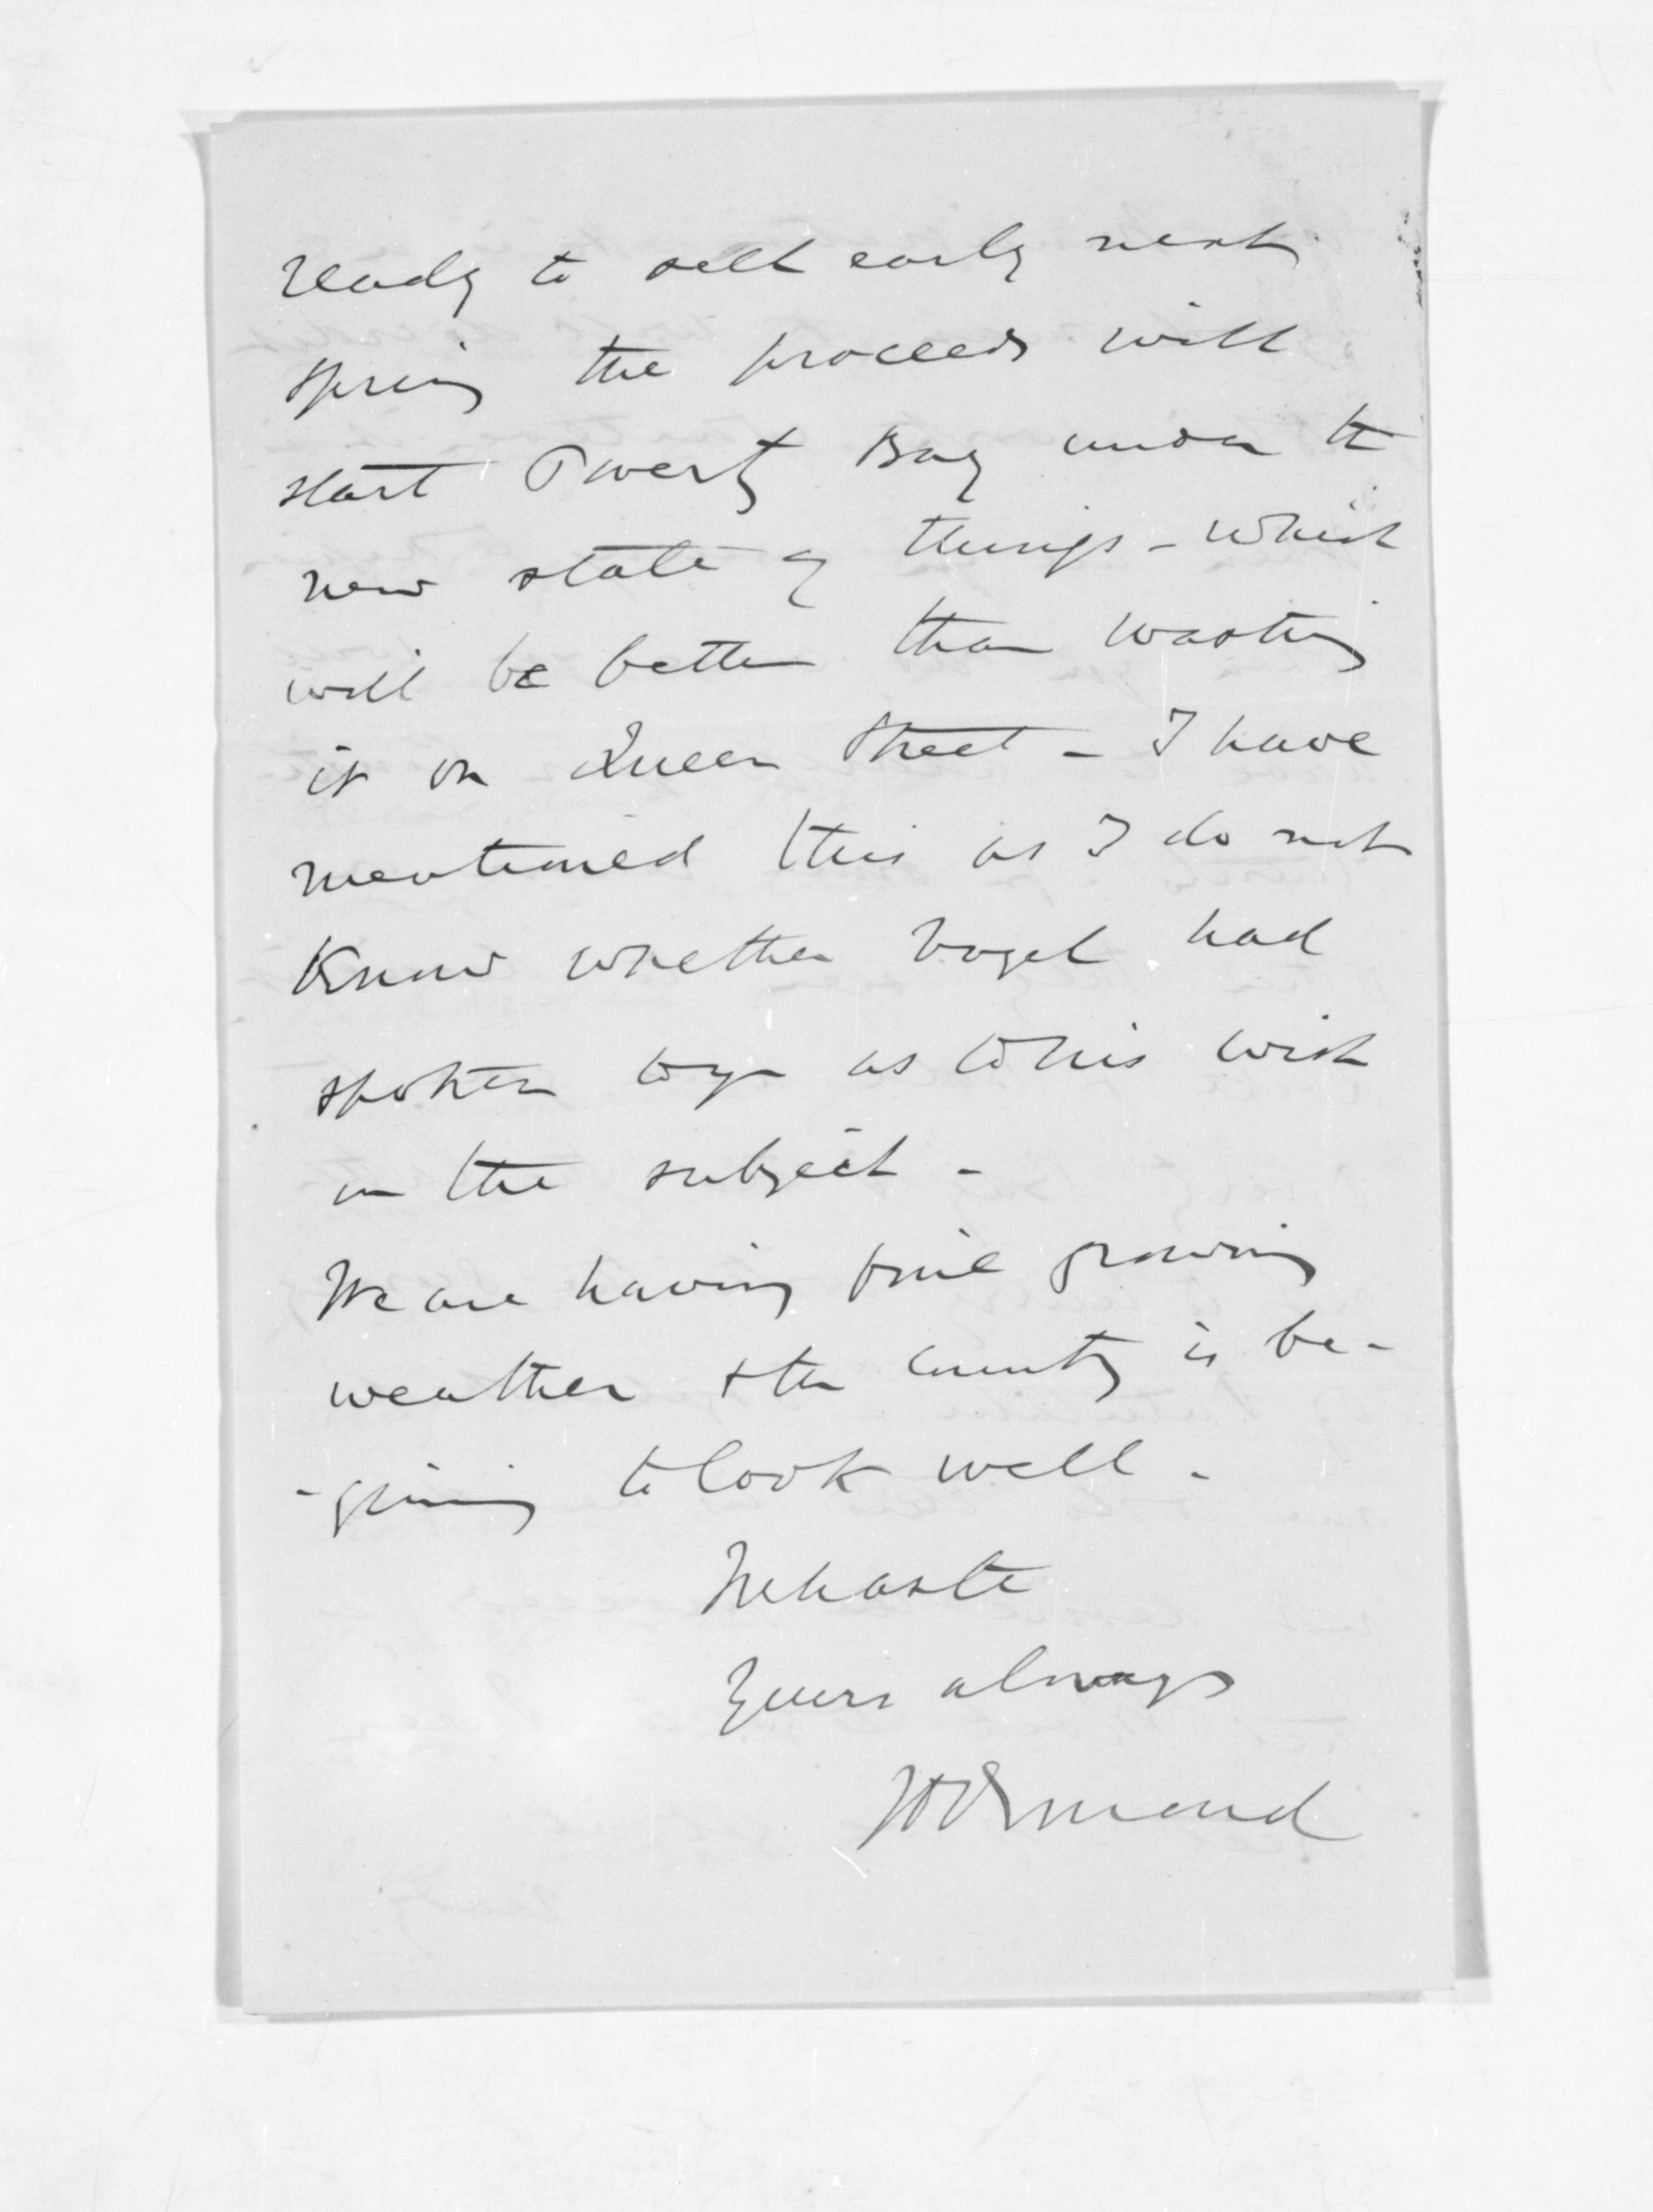 ready to sell early next
spring the proceeds will
start Poverty Bay under the
new state of things - which
will be better than wasting
it on Queen Street - I have
mentioned this as I do not
know whether Vogel had
spoken to you as to his wish
on the subject -
We are having fine growing
weather & the country is be-
-gining to look well -
In haste
Yours always
JD Ormond